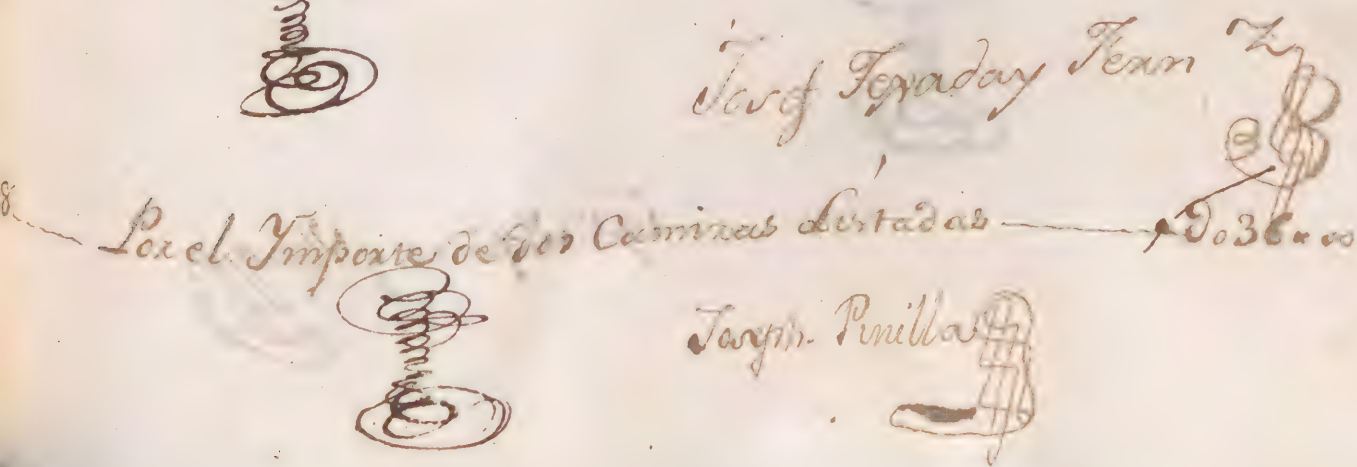 Josef Texaday Fern z
8 Por el Ymporte de dos Camizas Listadas D 036 r oo
Joseph Pinilla